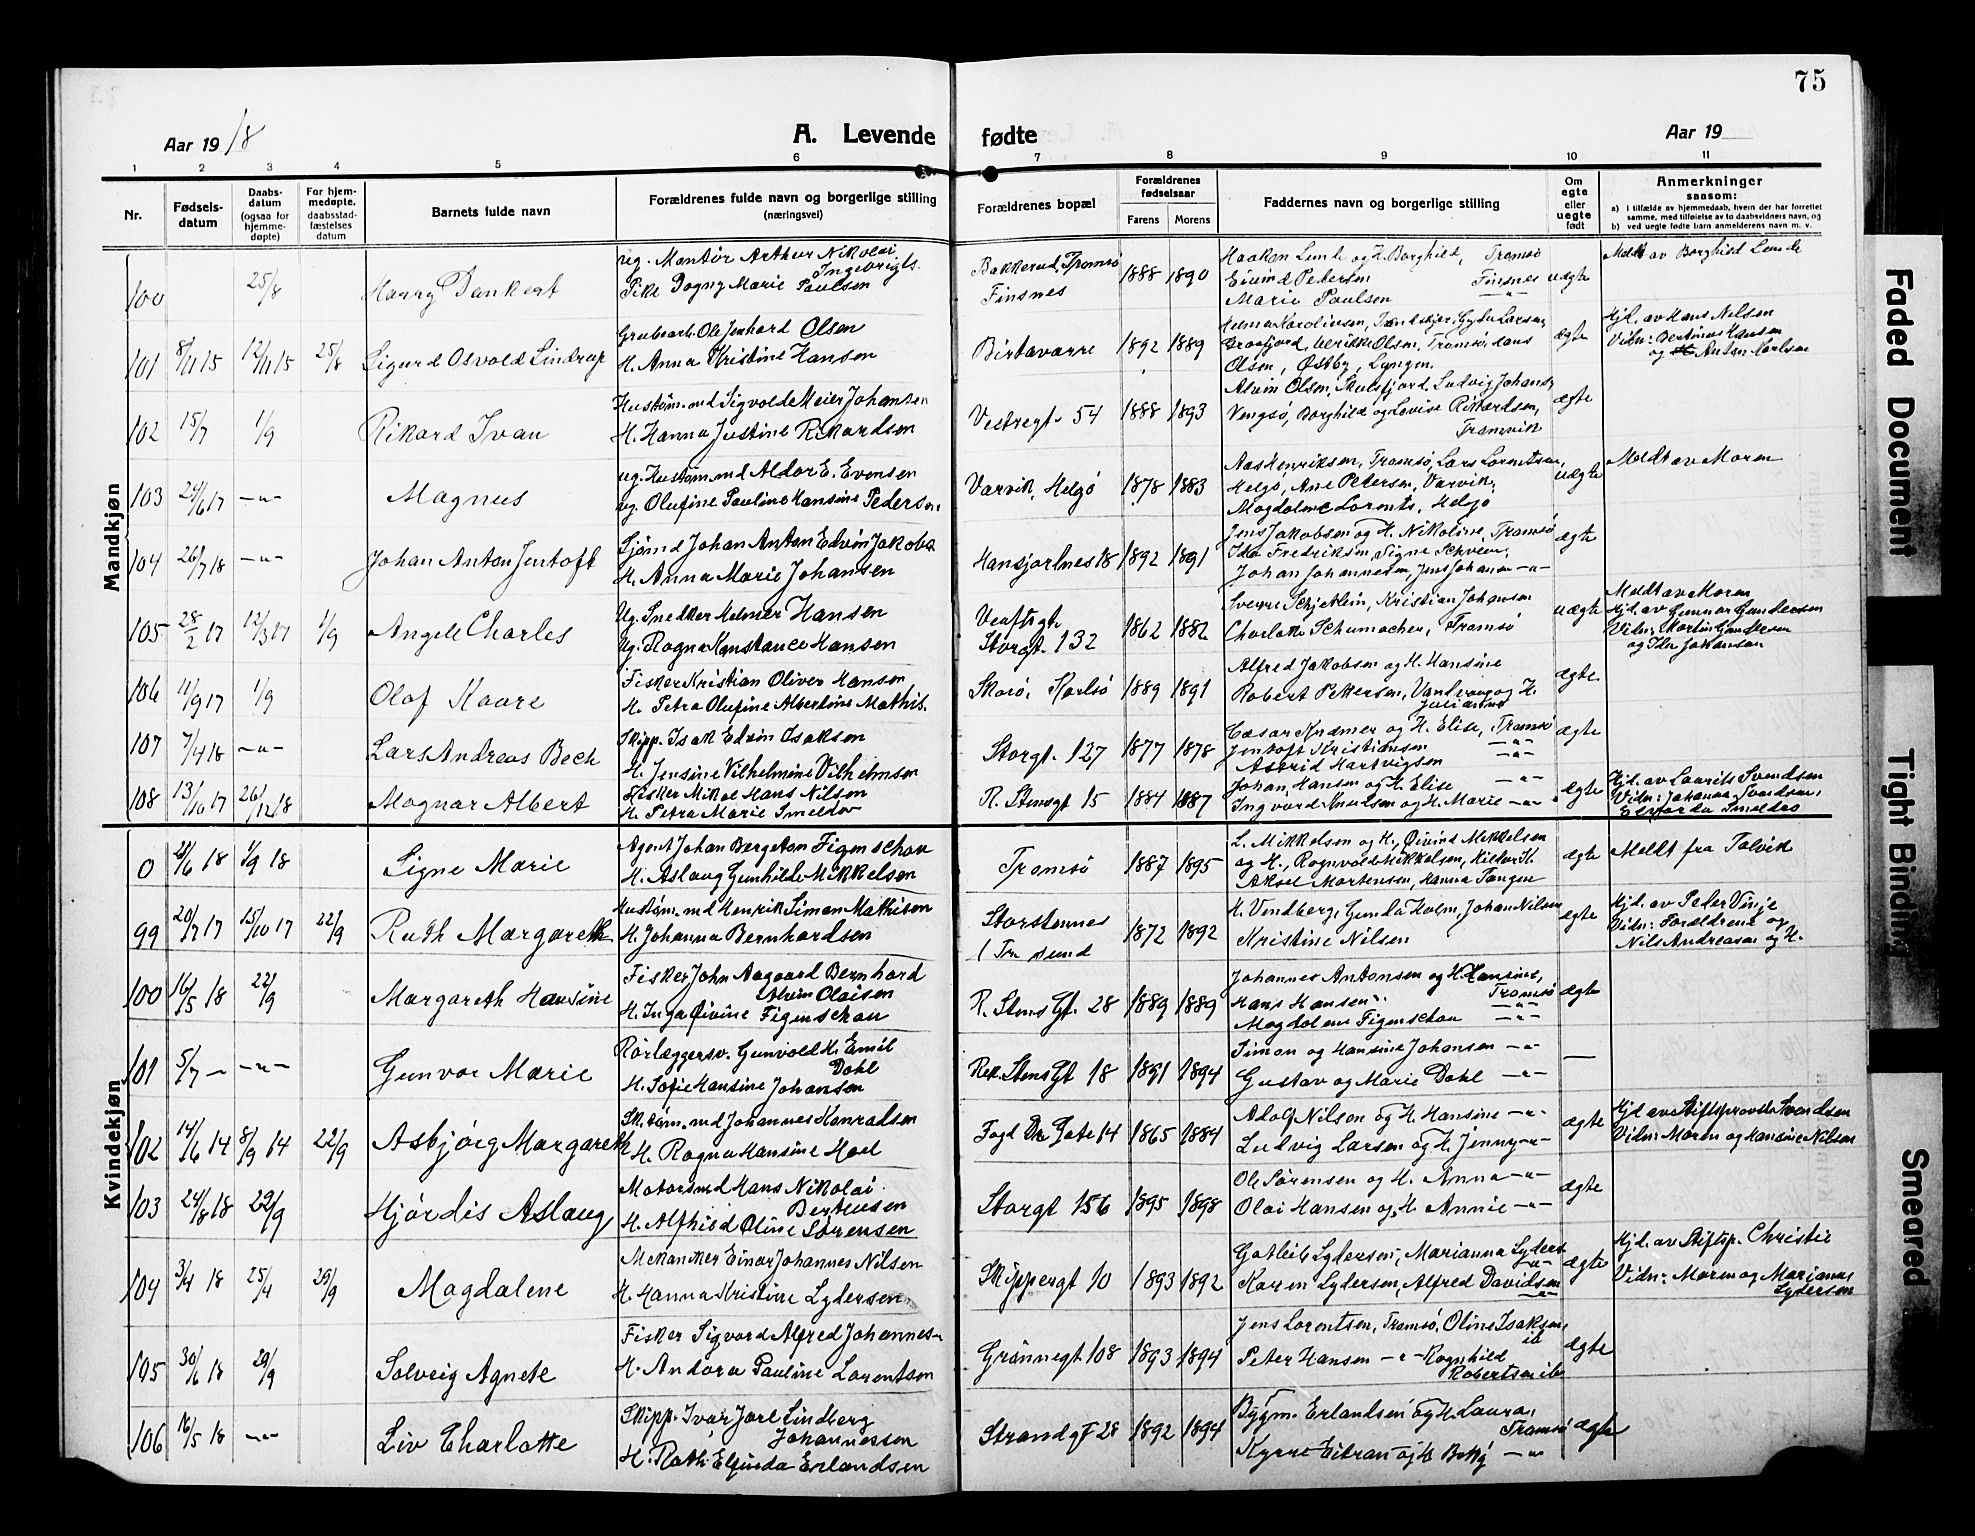 75
Aar 1918
A. Levende fødte
Aar 19
1 2 3 4 5 6 7 8 9 10 11
Nr.
Fødsels-
datum
Daabs-
datum
(ogsaa for
hjemme-
døpte)
For hjem-
medøpte,
daabsstad-
fæstelses
datum
Barnets fulde navn
Forældrenes fulde navn og borgerlige stilling
(næringsvei)
Forældrenes bopæl
Forældrenes
fødselsaar
Farens Morens
Faddernes navn og borgerlige stilling
Om
egte
eller
uegte
født
Anmerkninger
saasom:
a) i tilfælde av hjemmedaab, hvem der har forrettet
samme, med tilføielse av to daabsvidners navn, og
b) ved uegte fødte barn anmelderens navn m. v.
Mandkjøn
100 25/8 Harry Dankert
ug. Montør Arthur Nikolai
Ingebrigts.
Pike Dagny Marie Paulsen
Bakkerud, Tromsø
Finsnes
1888 1890
Haakon Lunde og H. Borghild, Tromsø
Eivind Petersen Finsnes
Marie Paulsen —"—
uægte
Meldt av Borghild Lunde
101 8/11 15 12/11 15 25/8 Sigurd Osvold Lindrup
Grubearb. Ole Jenhard Olsen
H. Anna Kristine Hansen
Birtavarre
1892 1889
Olsen, Østby, Lyngen.
ægte
Hjd. av Hans Nilsen
Vidn: Bertinus Hansen
og Anton Karlsen
102 15/7 1/9 Rikard Ivan
Hustømmd Sigvold Meier Johansen
H. Hanna Justine Rikardsen
Vestregt. 54
1888 1893
Alvin Olsen, Skulsfjord, Ludvig Johans,
Vengsø, Borghild og Lovise Rikardsen,
Tromvik
ægte
103 24/6 17 —"— Magnus
ug. Hustømmd Aldor E. Evensen
ug. Olufine Pauline Hansine Pedersen,
Varvik, Helgø
1878 1883
Aas Henriksen, Tromsø, Lars Lorentsen,
Helgø, Ane Petersen, Varvik,
Magdalene Lorents, Helgø
uægte
Meldt av Moren
104 26/7 18 —"— Johan Anton Jentoft
Sjømd Johan Anton Edvin Jakobs.
H. Anna Marie Johansen
Hansjordnes 18
1892 1891
Jens Jakobsen og H. Nikoline, Tromsø
Ida Fredriksen, Signe
Johan Johannesen, Jens Johansen —"—
ægte
105 28/2 17 12/3 17 1/9 Angell Charles
Ug. Snedker Helmer Hansen
Ug. Ragna Konstance Hansen
Storgt. 132
1862 1882
Sverre Schjetlein, Kristian Johansen
Charlotte Schumacher, Tromsø
uægte
Meldt av Moren
Hjd. av Gunnar Gundersen
Vidn: Martin Gundersen
og Ida Johansen
106 11/9 17 1/9 Olaf Kaare
Fisker Kristian Oliver Hansen
H. Petra Olufine Albertine Mathis.
Skorø, Karlsø
1889 1891
Alfred Jakobsen og H. Hansine
Robert Pettersen, Vandvaag og H.
Julianne
ægte
107 7/4 18 —"— Lars Andreas Bech
Skipp. Isak Edvin Isaksen
H. Jensine Vilhelmine Vilhelmsen
Storgt. 127
1877 1878
Cæsar Kræmer og H. Elise, Tromsø
Jentoft Kristiansen —"—
Astrid Hartvigsen —"—
ægte
108 13/10 17 26/12 18 Magnar Albert
Fisker Mikal Hans Nilsen
H. Petra Marie Smeldor
R. Stensgt 15
1884 1887
Johan Hansen og H. Elise —"—
Ingvard Knutsen og H. Marie —"—
ægte
Hjd. av Laurits Svendsen
Vidn: Johanna Svendsen,
Edvarda Smeldor
Kvindekjøn
0 28/6 18 1/9 18 Signe Marie
Agent Johan Bergeton Figenschou
H. Aslaug Gunhilde Mikkelsen
Tromsø
1887 1895
L. Mikkelsen og H., Øivind Mikkelsen
og H., Ragnvald Mikkelsen, Kielor K.
Aksel Mortensen, Hanna Tangen
ægte
Meldt fra Talvik
99 20/7 17 15/10 17 22/9 Ruth Margareth
Hustømmd Henrik Simon Mathisen
H. Johanna Bernhardsen
Storstennes
/ Tr. sund
1872 1892
H. Vendberg, Gunda Holm, Johan Nilsen
Kristine Nilsen
ægte
Hjd. av Peder Vinje
Vidn: Forældrene og
Nils Andreasen og H.
100 16/5 18 22/9 Margareth Hansine
Fisker John Aagaard Bernhard
Alvin Olaisen
H. Inga Øivine Figenschou
R. Stens Gt. 28
1889 1889
Johannes Antonsen og H. Hansine,
Hans Hansen Tromsø
Magdalene Figenschou —"—
ægte
101 5/7 — —"— Gunvor Marie
Rørlæggersv. Gunvold H. Emil
Dahl
H. Sofie Hansine Johansen
Rek. Stens Gt 18
1891 1894
Simon og Hansine Johansen —"—
Gustav og Marie Dahl —"—
—
102 14/6 14 8/9 14 22/9 Asbjørg Margareth
Sk.tømmd Johannes Konradsen
H. Ragna Hansine Hoel
Fogd Dr. Gate 14
1865 1884
Adolf Nilsen og H. Hansine —"—
Ludvig Larsen og H. Jenny —"—
ægte
Hjd. av Stiftsprovst Svendsen
Vidn: Moren og Hansine Nilsen
103 24/8 18 22/9 Hjørdis Aslaug
Motormd Hans Nikolai
Berteusen
H. Alfhild Oline Sørensen
Storgt 156
1895 1898
Ole Sørensen og H. Anna —"—
Olai Hansen og H. Annie —"—
ægte
104 3/4 18 25/4 29/9 Magdalene
Mekaniker Einar Johannes Nilsen
H. Hanna Kristine Lydersen
Skippergt 10
1893 1892
Gotleib Lydersen, Marianna Lyders.
—"—
Karen Lydersen, Alfred Davidsen
—"—
ægte
Hjd. av Stiftsp. Christie
Vidn: Moren og Marianne
Lydersen
105 30/6 18 29/9 Solveig Agnete
Fisker Sigvard Alfred Johannes-
H. Andora Pauline Lorentsen
Grønnegt 108
1893 1894
Jens Lorentsen, Tromsø, Oline Isaksen,
ib
Peter Hansen —"— Ragnhild
Robertsen ib
ægte
106 16/5 18 —"— Liv Charlotte
Skipp. Ivar Jarl Lindberg
Johannessen
H. Ruth Elfrida Erlandsen
Strandgt 28
1892 1894
Bygm. Erlandsen og H. Laura,
Tromsø
Kyrre Eitran og H Botty —"—
ægte
Faded Document
Tight Binding
Smeared